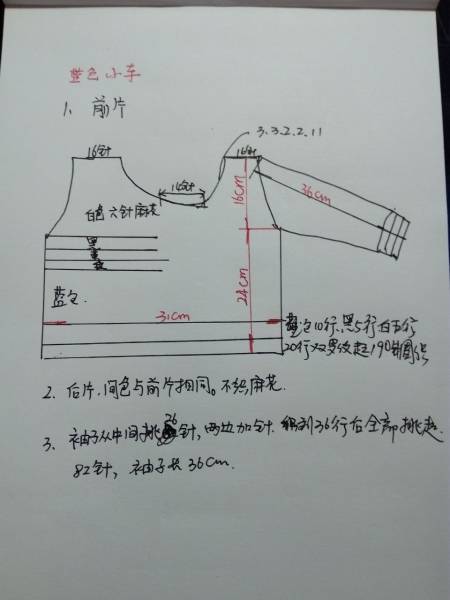 蓝色小车
1、前片
3.3.2.2.11
16针
16针
14针
36cm
16cm
白色六针麻花
黑
黄
24cm
蓝色
31cm
蓝色10行、黑5行白五行
20行双罗纹起190针圈织
2、后片、间色与前片相同。不织麻花.
3、袖子从中间挑26针,两边加针.织到36行后全部挑起
82针,袖子长36cm.